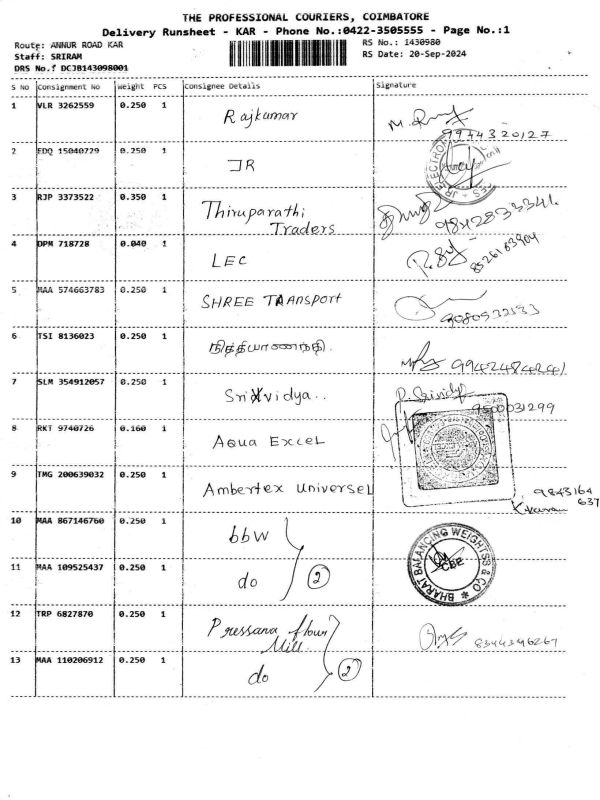 THE PROFESSIONAL COURIERS, COIMBATORE
Delivery Runsheet - KAR - Phone No.:0422-3505555 - Page No.:1
Route: ANNUR ROAD KAR RS No.: 1430980
Staff: SRIRAM RS Date: 20-Sep-2024
DRS No.f DCJB143098001
S No Consignment No Weight PCS Consignee Details Signature
1 VLR 3262559 0.250 1 Rajkumar
9944320127
2 EDQ 15040729 0.250 1 JR
3 RJP 3373522 0.350 1 Thiruparathi
Traders 9842833341
4 DPM 718728 0.040 1 LEC 8526163904
5 MAA 574663783 0.250 1 SHREE TRANSPORT
9080532133
6 TSI 8136023 0.250 1 நித்தியானந்தி. 9942484241
7 SLM 354912057 0.250 1 Sri vidya.. P. Srividya
9500031299
8 RKT 9740726 0.160 1 AQUA EXCEL
9 TMG 200639032 0.250 1 Ambertex Universel 9843164
637
10 MAA 867146760 0.250 1 bbw
BHARAT BALANCING WEIGHTSS & CO
CBE
11 MAA 109525437 0.250 1 do 2
12 TRP 6827870 0.250 1 Pressana flour
Mill 8344396267
13 MAA 110206912 0.250 1 do 2